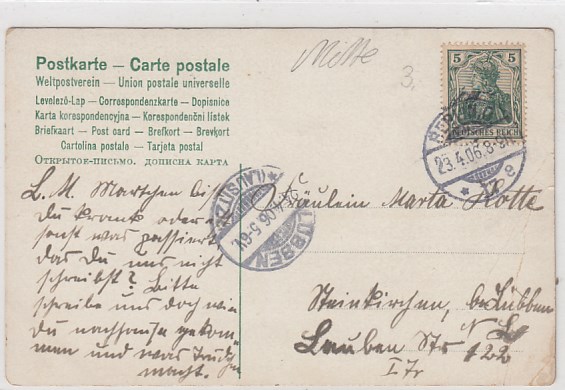 Postkarte — Carte postale
Weltpostverein — Union postale universelle
Levelező-Lap — Correspondenzkarte — Dopisnice
Karta korespondencyjna — Korespondenční lístek
Briefkaart — Post card — Brefkort — Brevkort
Cartolina postale — Tarjeta postal
Открытое-письмо. дописна карта
Mitte
3.
5 5
DEUTSCHES REICH
23.4.06. 8-9
LÜBBEN
(LAUSITZ)
L. M. Martchen bist
Du krank oder ist
sonst was passiert
das Du uns nicht
schreibst? Bitte
schreibe uns doch wie
Du nachhause gekom-
men und was
macht.
Fräulein Marta Kotte
Steinkirchen, bei Lübben
N. L.
Lauben Str 122
I Tr